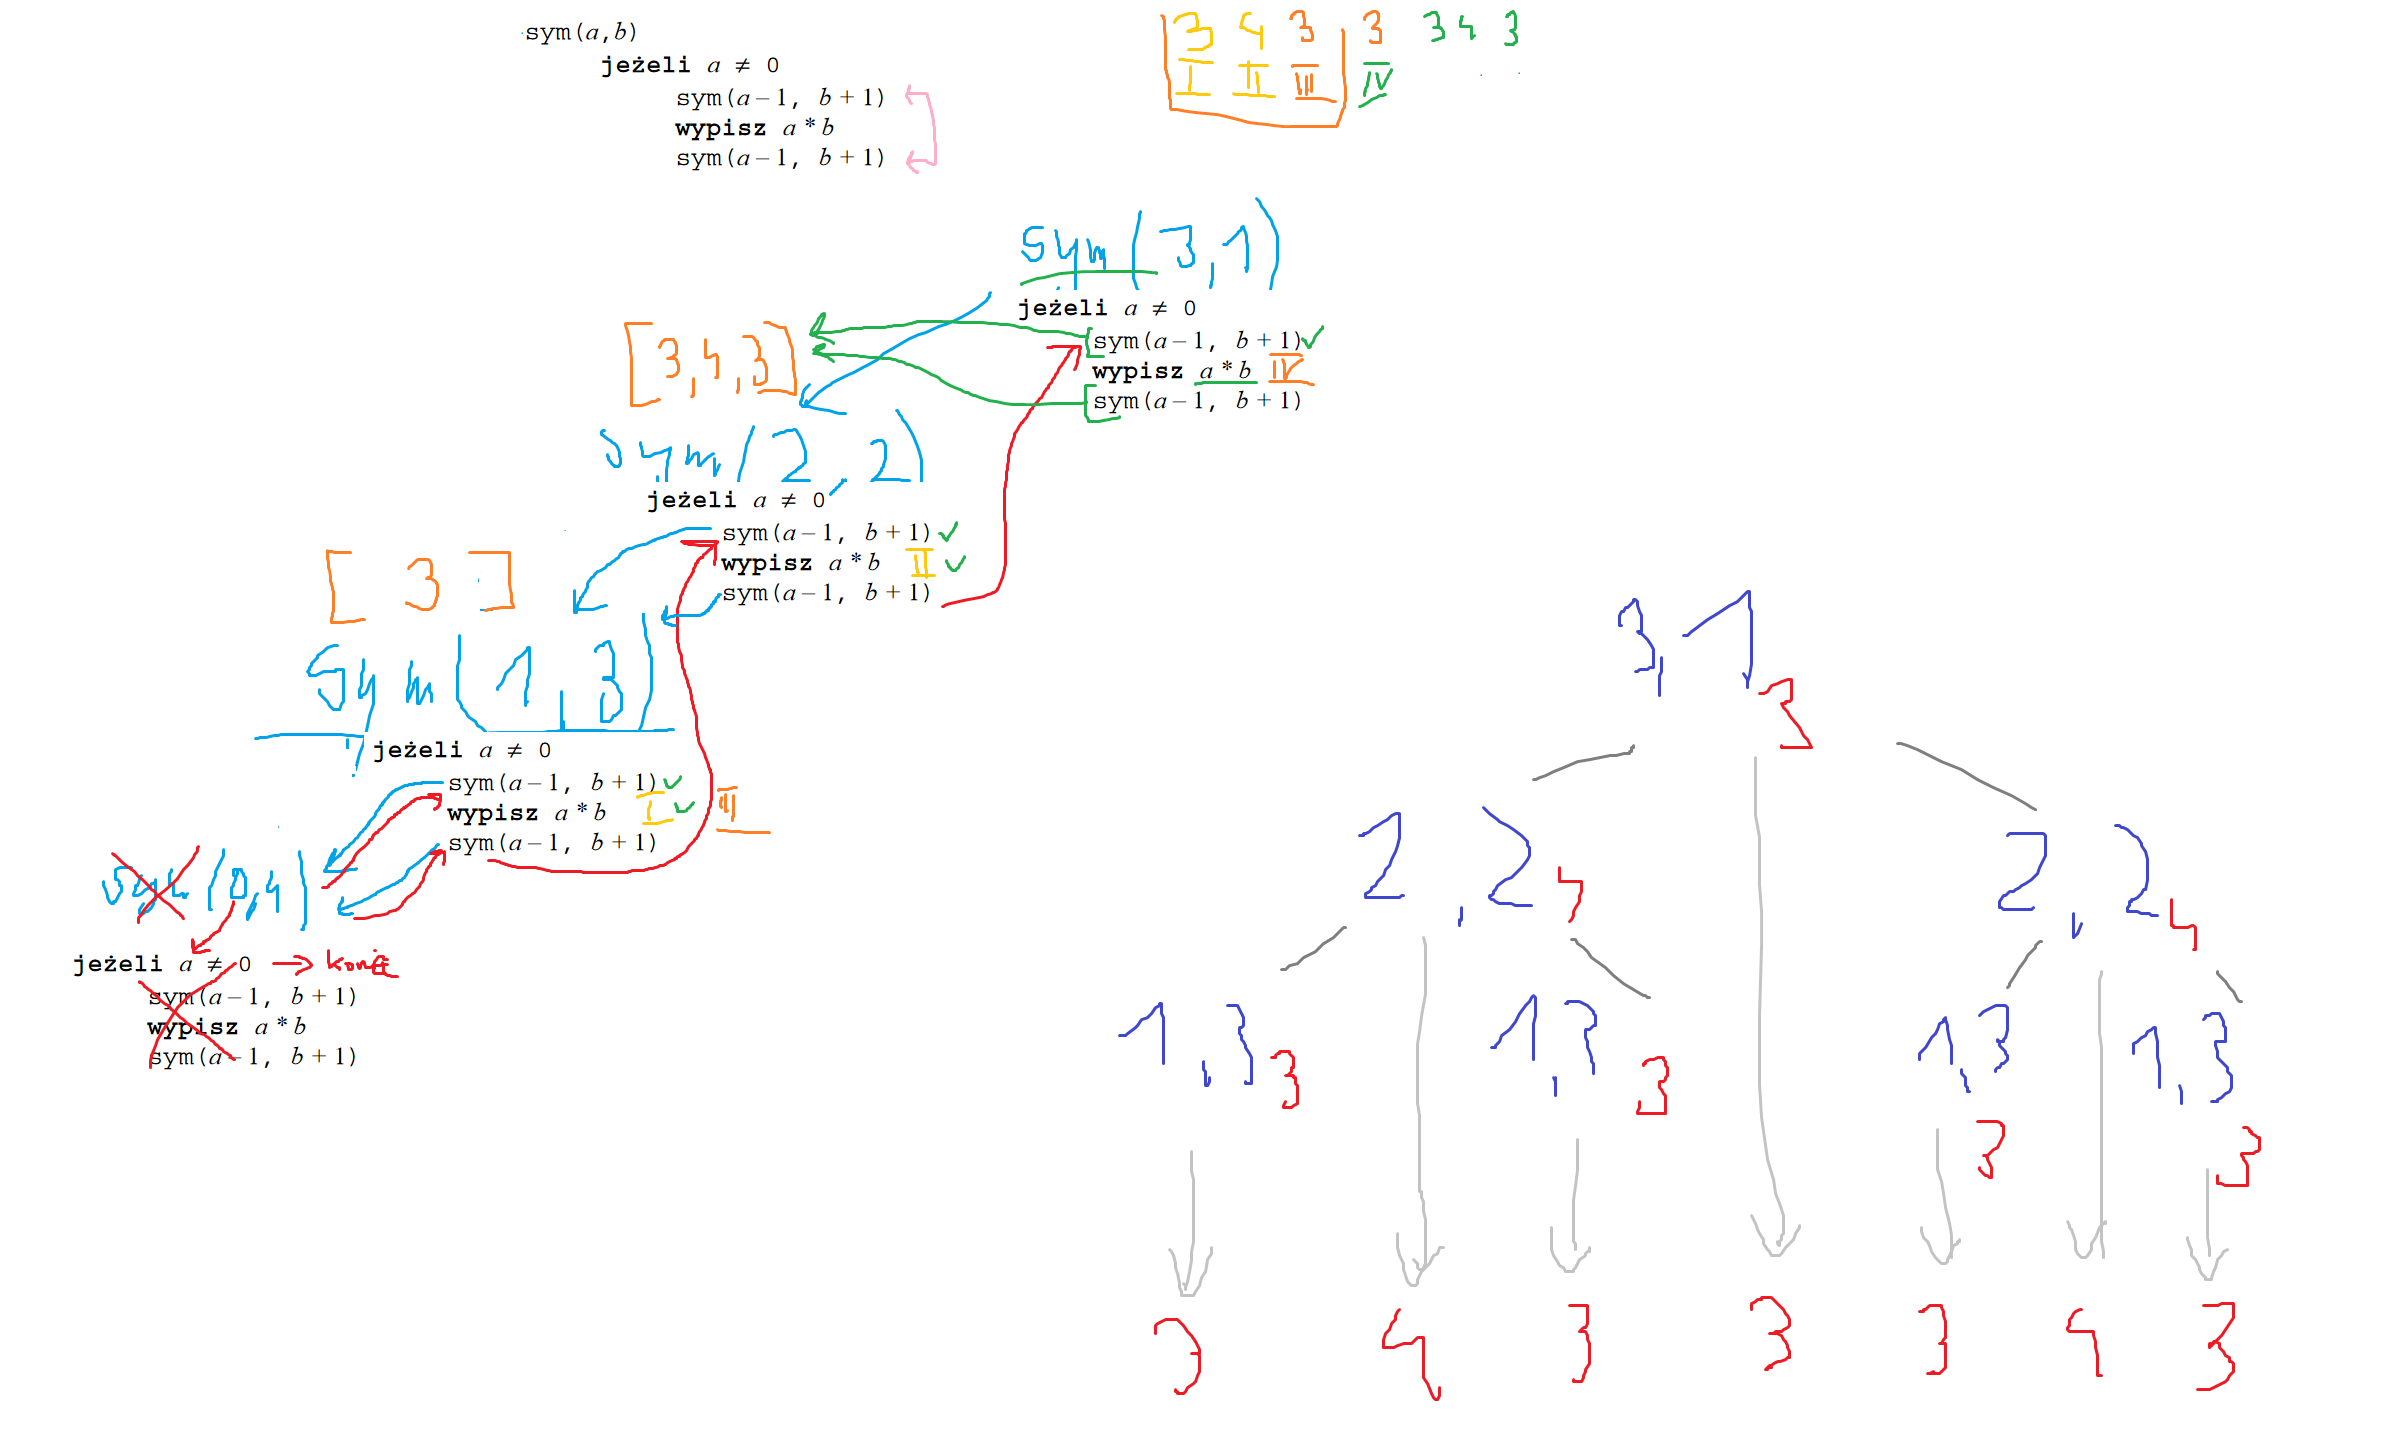 sym(a,b)
jeżeli a ≠ 0
sym(a−1, b+1)
wypisz a*b
sym(a−1, b+1)
3 4 3 3 3 4 3
I II III IV
sym(3,1)
jeżeli a ≠ 0
sym(a−1, b+1)
wypisz a*b IV
sym(a−1, b+1)
[3,4,3]
sym(2,2)
jeżeli a ≠ 0
sym(a−1, b+1)
wypisz a*b II
sym(a−1, b+1)
[3]
sym(1,3)
jeżeli a ≠ 0
sym(a−1, b+1)
wypisz a*b I III
sym(a−1, b+1)
sym(0,4)
jeżeli a ≠ 0 → konie
sym(a−1, b+1)
wypisz a*b
sym(a−1, b+1)
3,1 3
2,2 4 2,2 4
1,3 3 1,3 3 1,3 3 1,3 3
3 4 3 3 3 4 3